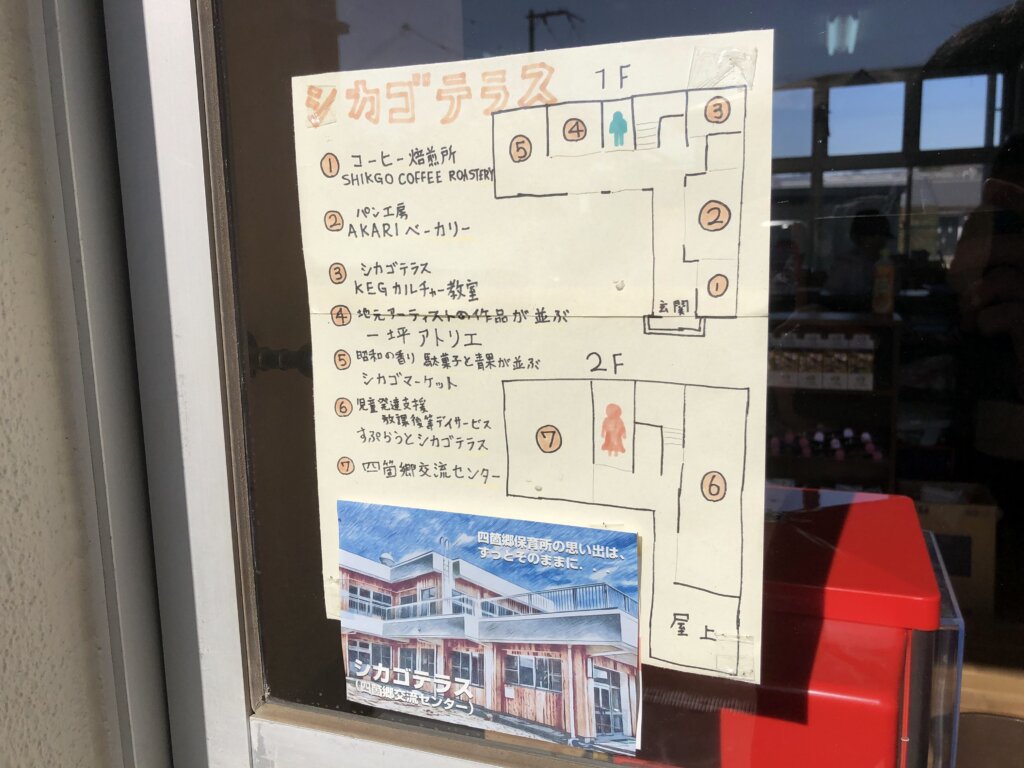 シカゴテラス
1F
① コーヒー焙煎所
SHIKGO COFFEE ROASTERY
② パン工房
AKARI ベーカリー
③ シカゴテラス
KEGカルチャー教室
④ 地元アーティストの作品が並ぶ
一坪アトリエ
⑤ 昭和の香り 駄菓子と青果が並ぶ
シカゴマーケット
⑥ 児童発達支援
放課後等デイサービス
すぷらうとシカゴテラス
⑦ 四箇郷交流センター
⑤
④
③
②
①
玄関
2F
⑦
⑥
屋上
四箇郷保育所の思い出は、
ずっとそのままに．．
シカゴテラス
（四箇郷交流センター）